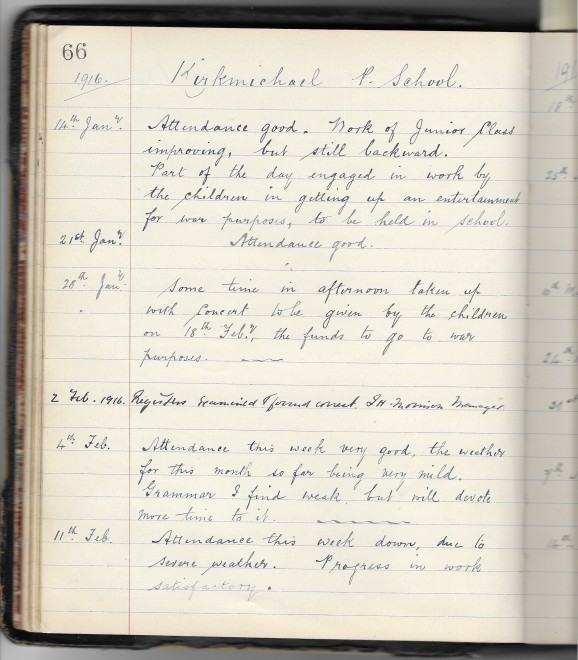 66
1916. Kirkmichael P. School.
14th Jany. Attendance good. Work of Junior Class
improving, but still backward.
Part of the day engaged in work by
the children in getting up an entertainment
for war purposes, to be held in school.
21st Jany. Attendance good.
28th Jany. Some time in afternoon taken up
with Concert to be given by the children
on 18th Feby., the funds to go to war
purposes.
2 Feb. 1916. Registers examined & found correct. Morrison Manager.
4th Feb. Attendance this week very good, the weather
for this month so far being very mild.
Grammar I find weak but will devote
more time to it.
11th Feb. Attendance this week down, due to
severe weather. Progress in work
satisfactory.